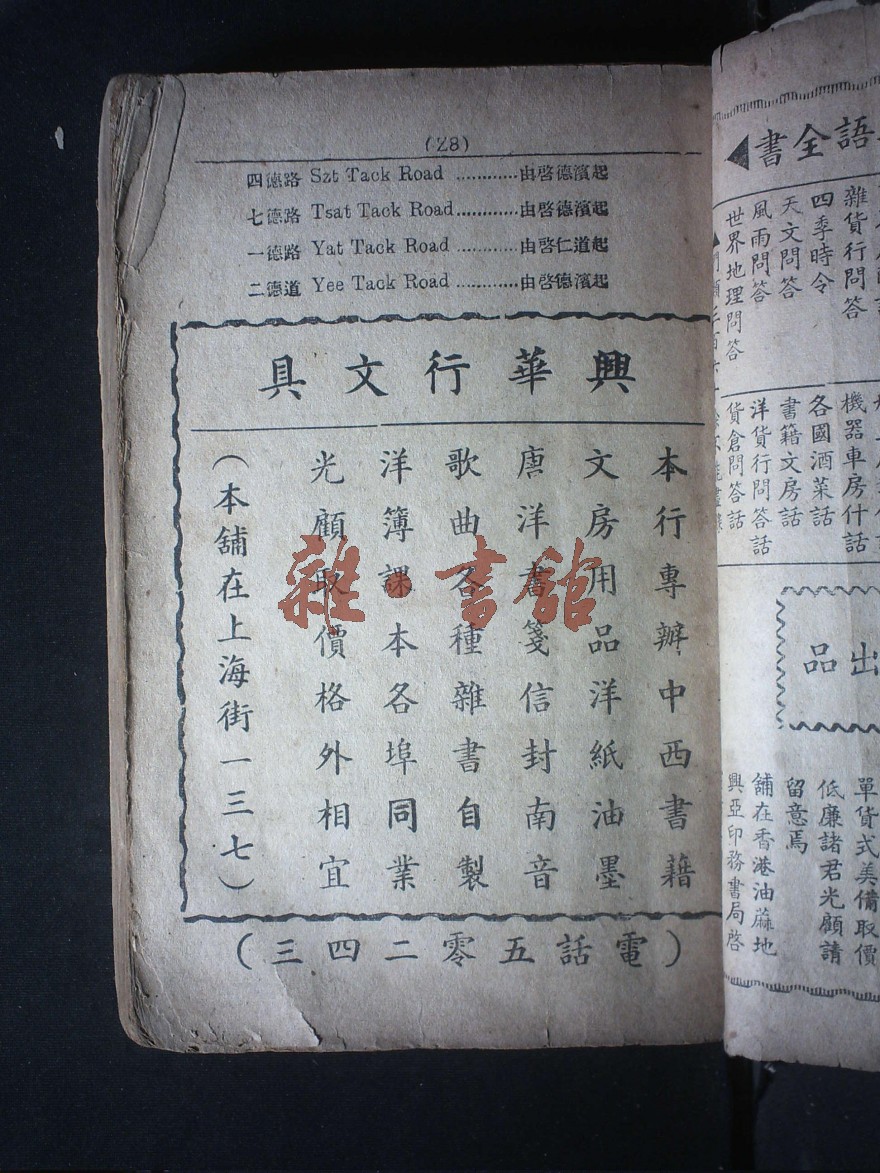 (28)
四德路 Szt Tack Road ............由啓德濱起
七德路 Tsat Tack Road............由啓德濱起
一德路 Yat Tack Road ............由啓仁道起
二德道 Yee Tack Road ............由啓德濱起
興華行文具
本行專辦中西書籍
文房用品洋紙油墨
唐洋書箋信封南音
歌曲各種雜書自製
洋簿課本各埠同業
光顧取價格外相宜
(本舖在上海街一三七)
(電話五零二四三)
雜·書館
語全書◀
雜貨行問答
四季時令
天文問答
風雨問答
世界地理問答
機器車房什話
各國酒菜話
書籍文房話
洋貨行問答話
貨倉問答話
出品
單貨式美備取價
低廉諸君光顧請
留意焉
舖在香港油蔴地
興亞印務書局啓